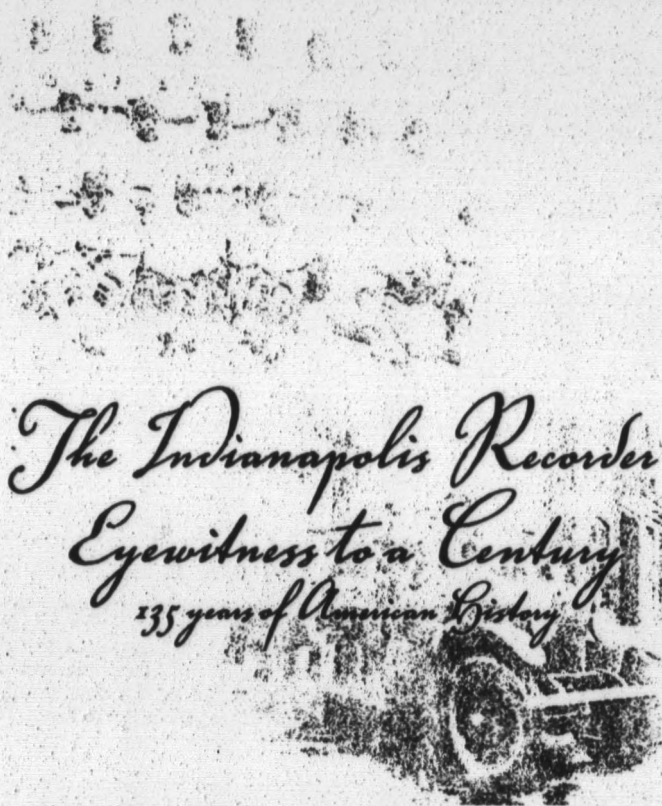 The Indianapolis Recorder
Eyewitness to a Century
135 years of American History